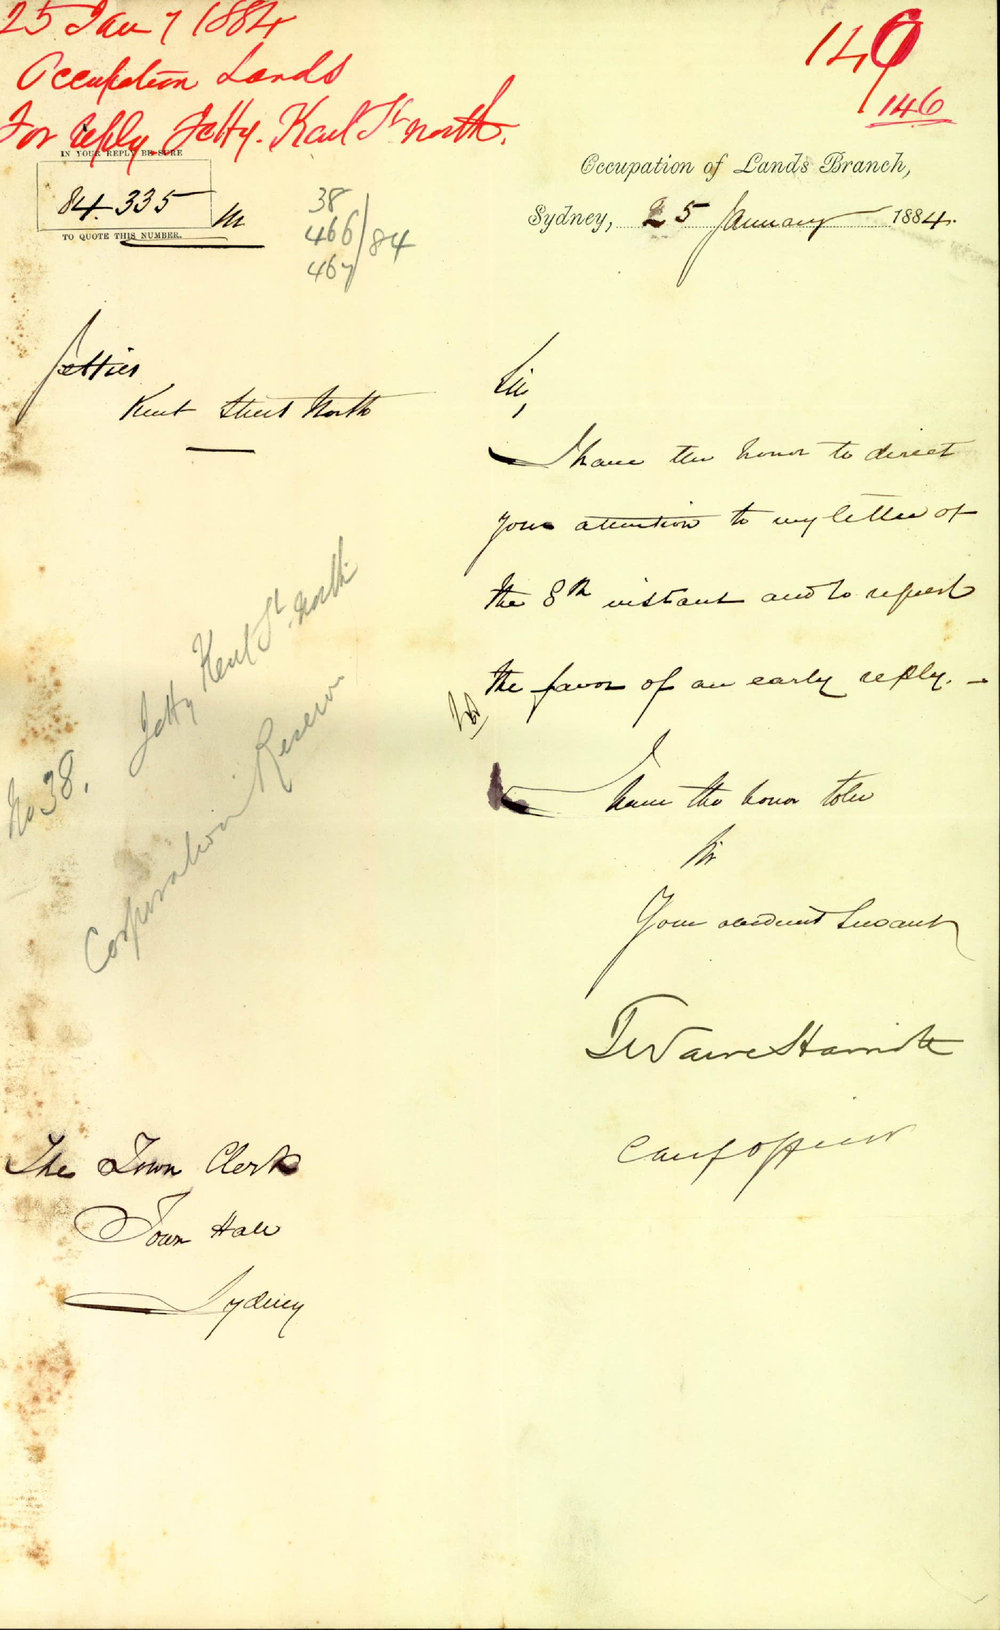 25 Jany 1884
Occupation Lands
For reply Jetty. Kent St north.
149
146
IN YOUR REPLY BE SURE
84-335 M
TO QUOTE THIS NUMBER.
38
466
467
/84
Occupation of Lands Branch,
Sydney, 25 January 1884.
Jetties
Kent Street North
Sir,
I have the honor to direct
your attention to my letter of
the 8th instant and to request
the favor of an early reply. -
I
have the honor to be
Sir
Your obedient Servant
Officer
No 38. Jetty Kent St. north
Corporation Reserve
The Town Clerk
Town Hall
Sydney